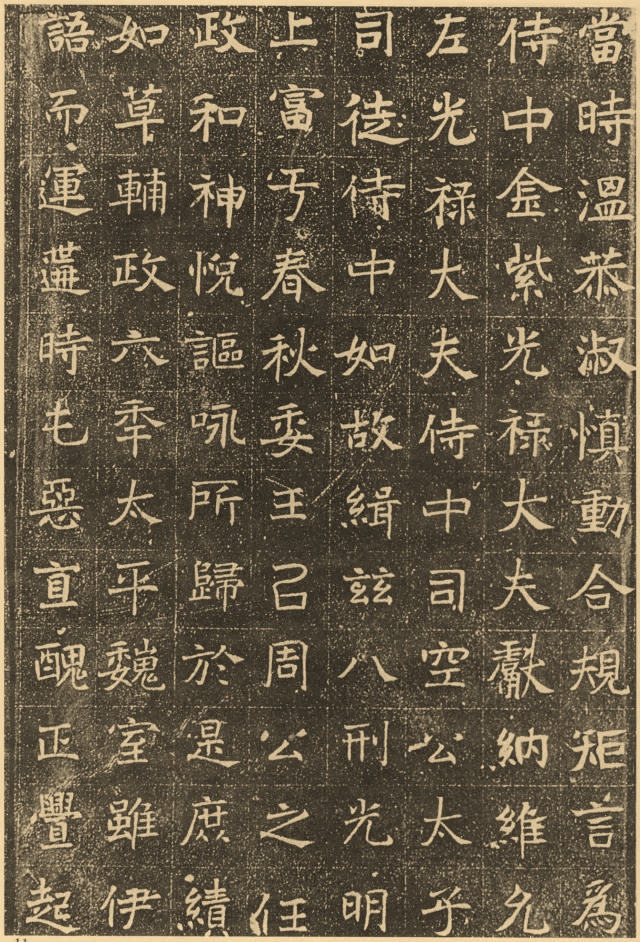 當時溫恭淑慎動合規矩言爲
侍中金紫光祿大夫獻納維允
左光祿大夫侍中司空公太乎
司徒侍中如故緝茲八刑光明
上富亐春秋委王㠯周公之任
政和神悅謳咏所歸於是庶績
如草輔政六年太平魏室雖伊
語而運遘時屯惡直醜正舋起
11